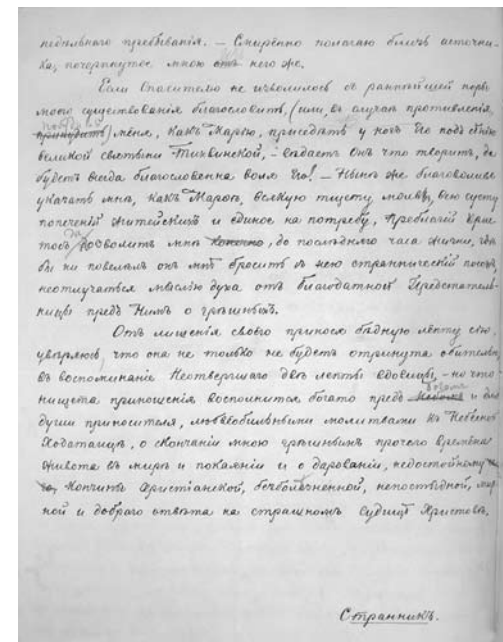 недѣльнаго пребыванія. — Смиренно полагаю близь источни-
ка, почерпнутое мною изъ него же.
Если Спасителю не изволилось съ раннѣйшей поры
моего существованія благословить, (или, въ случаѣ противленія,
понудить) меня, какъ Марію, присѣдѣть у ногъ Его подъ сѣнію
великой святыни Тихвинской, — вѣдаетъ Онъ что творитъ, да
будетъ всегда благословенна воля Его! — Нынѣ же благоволивъ
указать мнѣ, какъ Марѳѣ, всякую тщету молвы, всю суету
попеченій житейскихъ и единое на потребу, Преблагій Хрис-
тосъ да дозволитъ мнѣ до послѣдняго часа жизни, гдѣ
бы ни повелѣлъ онъ мнѣ бросить въ нею странническій посохъ,
неотлучаться мыслію духа отъ благодатной Предстатель-
ницы предъ Нимъ о грѣшныхъ.
Отъ лишенія своего принося бѣдную лепту сію,
увѣряюсь, что она не только не будетъ отринута обителью,
въ воспоминаніе Неотвергшаго двѣ лепты вдовицы, — но что
нищета приношенія восполнится богато предъ Богомъ и для
души приносителя, любвеобильными молитвами къ Небесной
Ходатаицѣ, о скончаніи мною грѣшнымъ прочаго времени
живота въ мирѣ и покаяніи и о дарованіи, недостойному
кончины христіанской, безболѣзненной, непостыдной, мир-
ной и добраго отвѣта на страшномъ Судищѣ Христовѣ.
Странникъ.